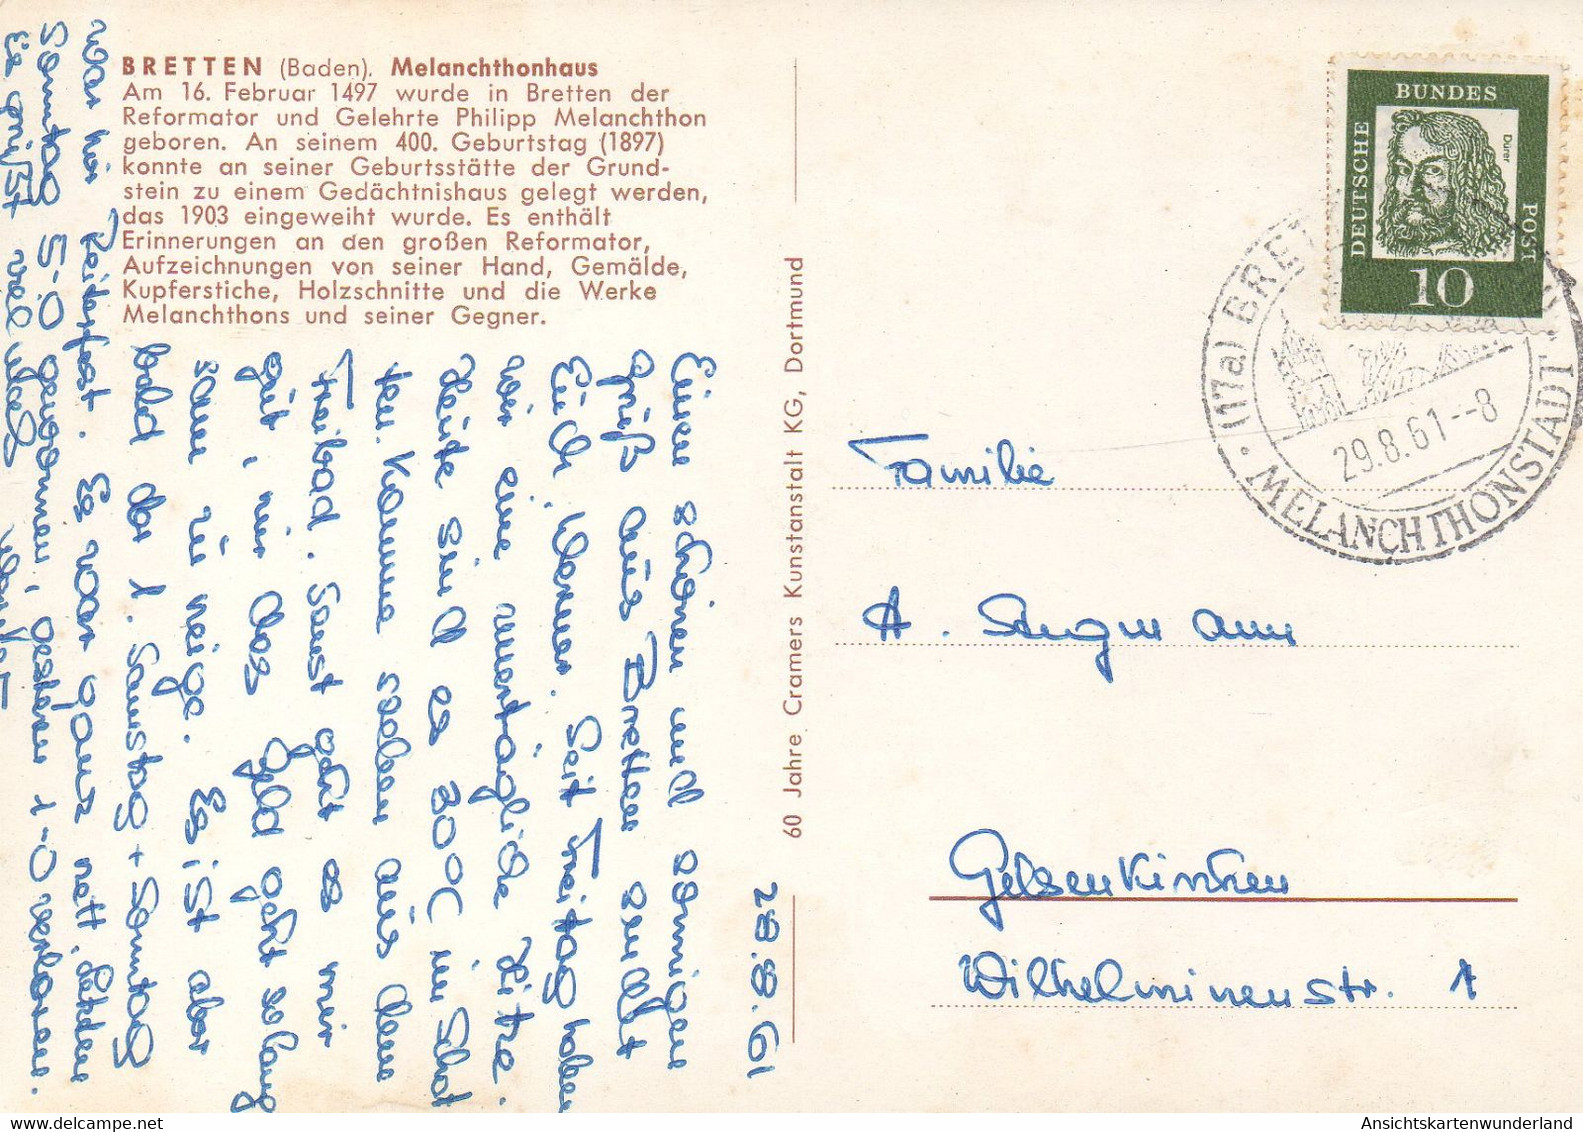 BRETTEN (Baden). Melanchthonhaus
Am 16. Februar 1497 wurde in Bretten der
Reformator und Gelehrte Philipp Melanchthon
geboren. An seinem 400. Geburtstag (1897)
konnte an seiner Geburtsstätte der Grund-
stein zu einem Gedächtnishaus gelegt werden,
das 1903 eingeweiht wurde. Es enthält
Erinnerungen an den großen Reformator,
Aufzeichnungen von seiner Hand, Gemälde,
Kupferstiche, Holzschnitte und die Werke
Melanchthons und seiner Gegner.
28.8.61
Einen schönen und sonnigen
Gruß aus Bretten sendet
Euch Werner. Seit Freitag haben
wir eine unerträgliche Hitze.
Heute sind es 30°C im Schat
ten. Komme soeben aus dem
Freibad. Sonst geht es mir
gut, nur das Geld geht so lang
sam zu neige. Es ist aber
bald der 1. Samstag + Sonntag
war hier Reiterfest. Es war ganz nett. Letzten
Sonntag 5-0 gewonnen, gestern 1-0 verloren.
Es grüßt vielmals
60 Jahre Cramers Kunstanstalt KG, Dortmund
DEUTSCHE
BUNDES
POST
Dürer
10
(17a) BRE
29.8.61--8
· MELANCHTHONSTADT
Familie
A. Sangmann
Gelsenkirchen
Wilhelminenstr. 1
Ansichtskartenwunderland